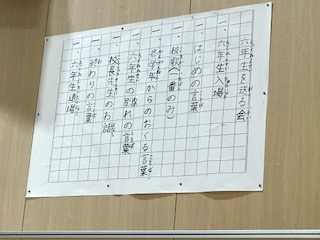 六年生を送る会
一、六年生入場
一、はじめの言葉
一、校歌（一番のみ）
一、各学年からのおくる言葉
一、六年生の別れの言葉
一、校長先生のお話
一、終わりの言葉
一、六年生退場